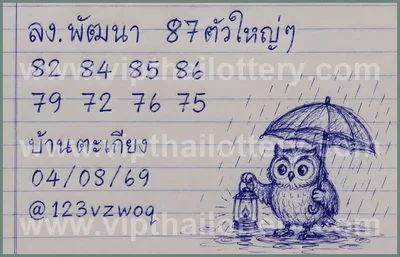 ลง.พัฒนา 87ตัวใหญ่ๆ
www.vipthailottery.com
82 84 85 86
79 72 76 75
บ้านตะเกียง
www.vipthailottery.com
04/08/69
@123vzwoq
www.vipthailottery.com